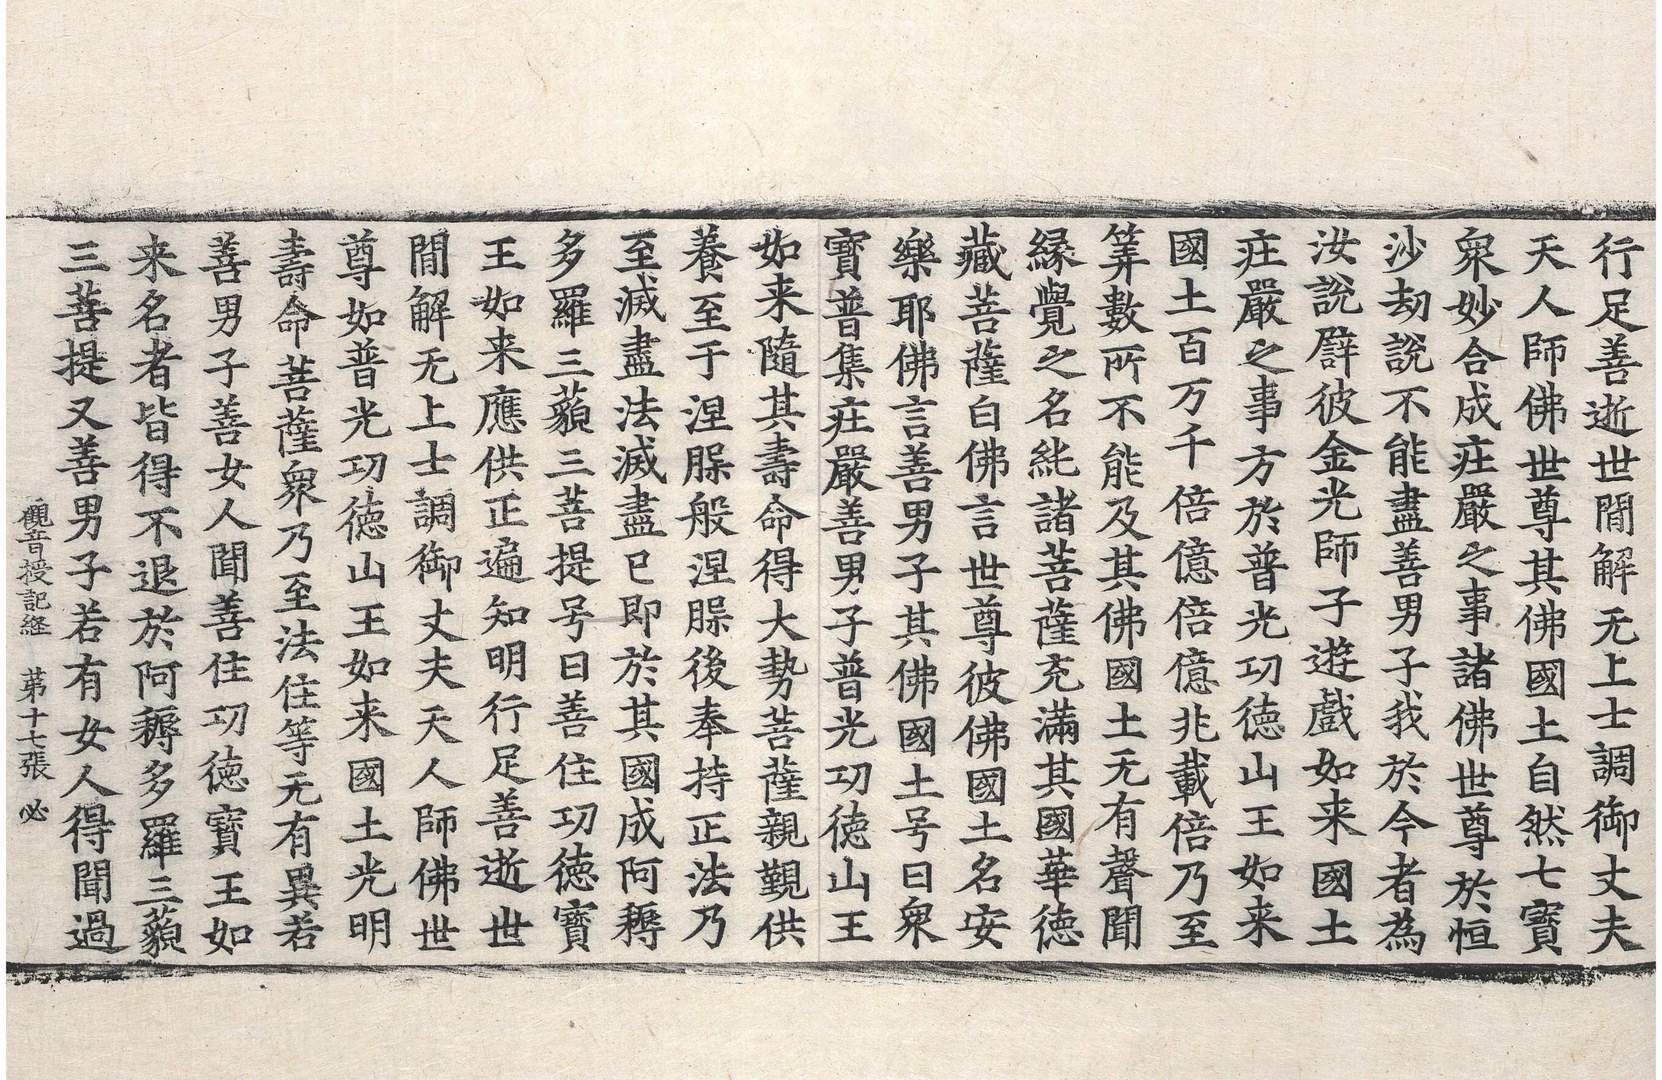 行足善逝世間解无上士調御丈夫
天人師佛世尊其佛國土自然七寶
衆妙合成庄嚴之事諸佛世尊於恒
沙劫說不能盡善男子我於今者為
汝說譬彼金光師子遊戲如来國土
庄嚴之事方於普光功徳山王如来
國土百万千倍億倍億兆載倍乃至
筭數所不能及其佛國土无有聲聞
縁覺之名純諸菩薩充滿其國華徳
藏菩薩白佛言世尊彼佛國土名安
樂耶佛言善男子其佛國土号曰衆
寶普集庄嚴善男子普光功徳山王
如来隨其壽命得大勢菩薩親覲供
養至于涅腺般涅腺後奉持正法乃
至滅盡法滅盡已即於其國成阿耨
多羅三藐三菩提号曰善住功徳寶
王如来應供正遍知明行足善逝世
間解无上士調御丈夫天人師佛世
尊如普光功徳山王如来國土光明
壽命菩薩衆乃至法住等无有異若
善男子善女人聞善住功徳寶王如
来名者皆得不退於阿耨多羅三藐
三菩提又善男子若有女人得聞過
觀音授記経 第十七張 必